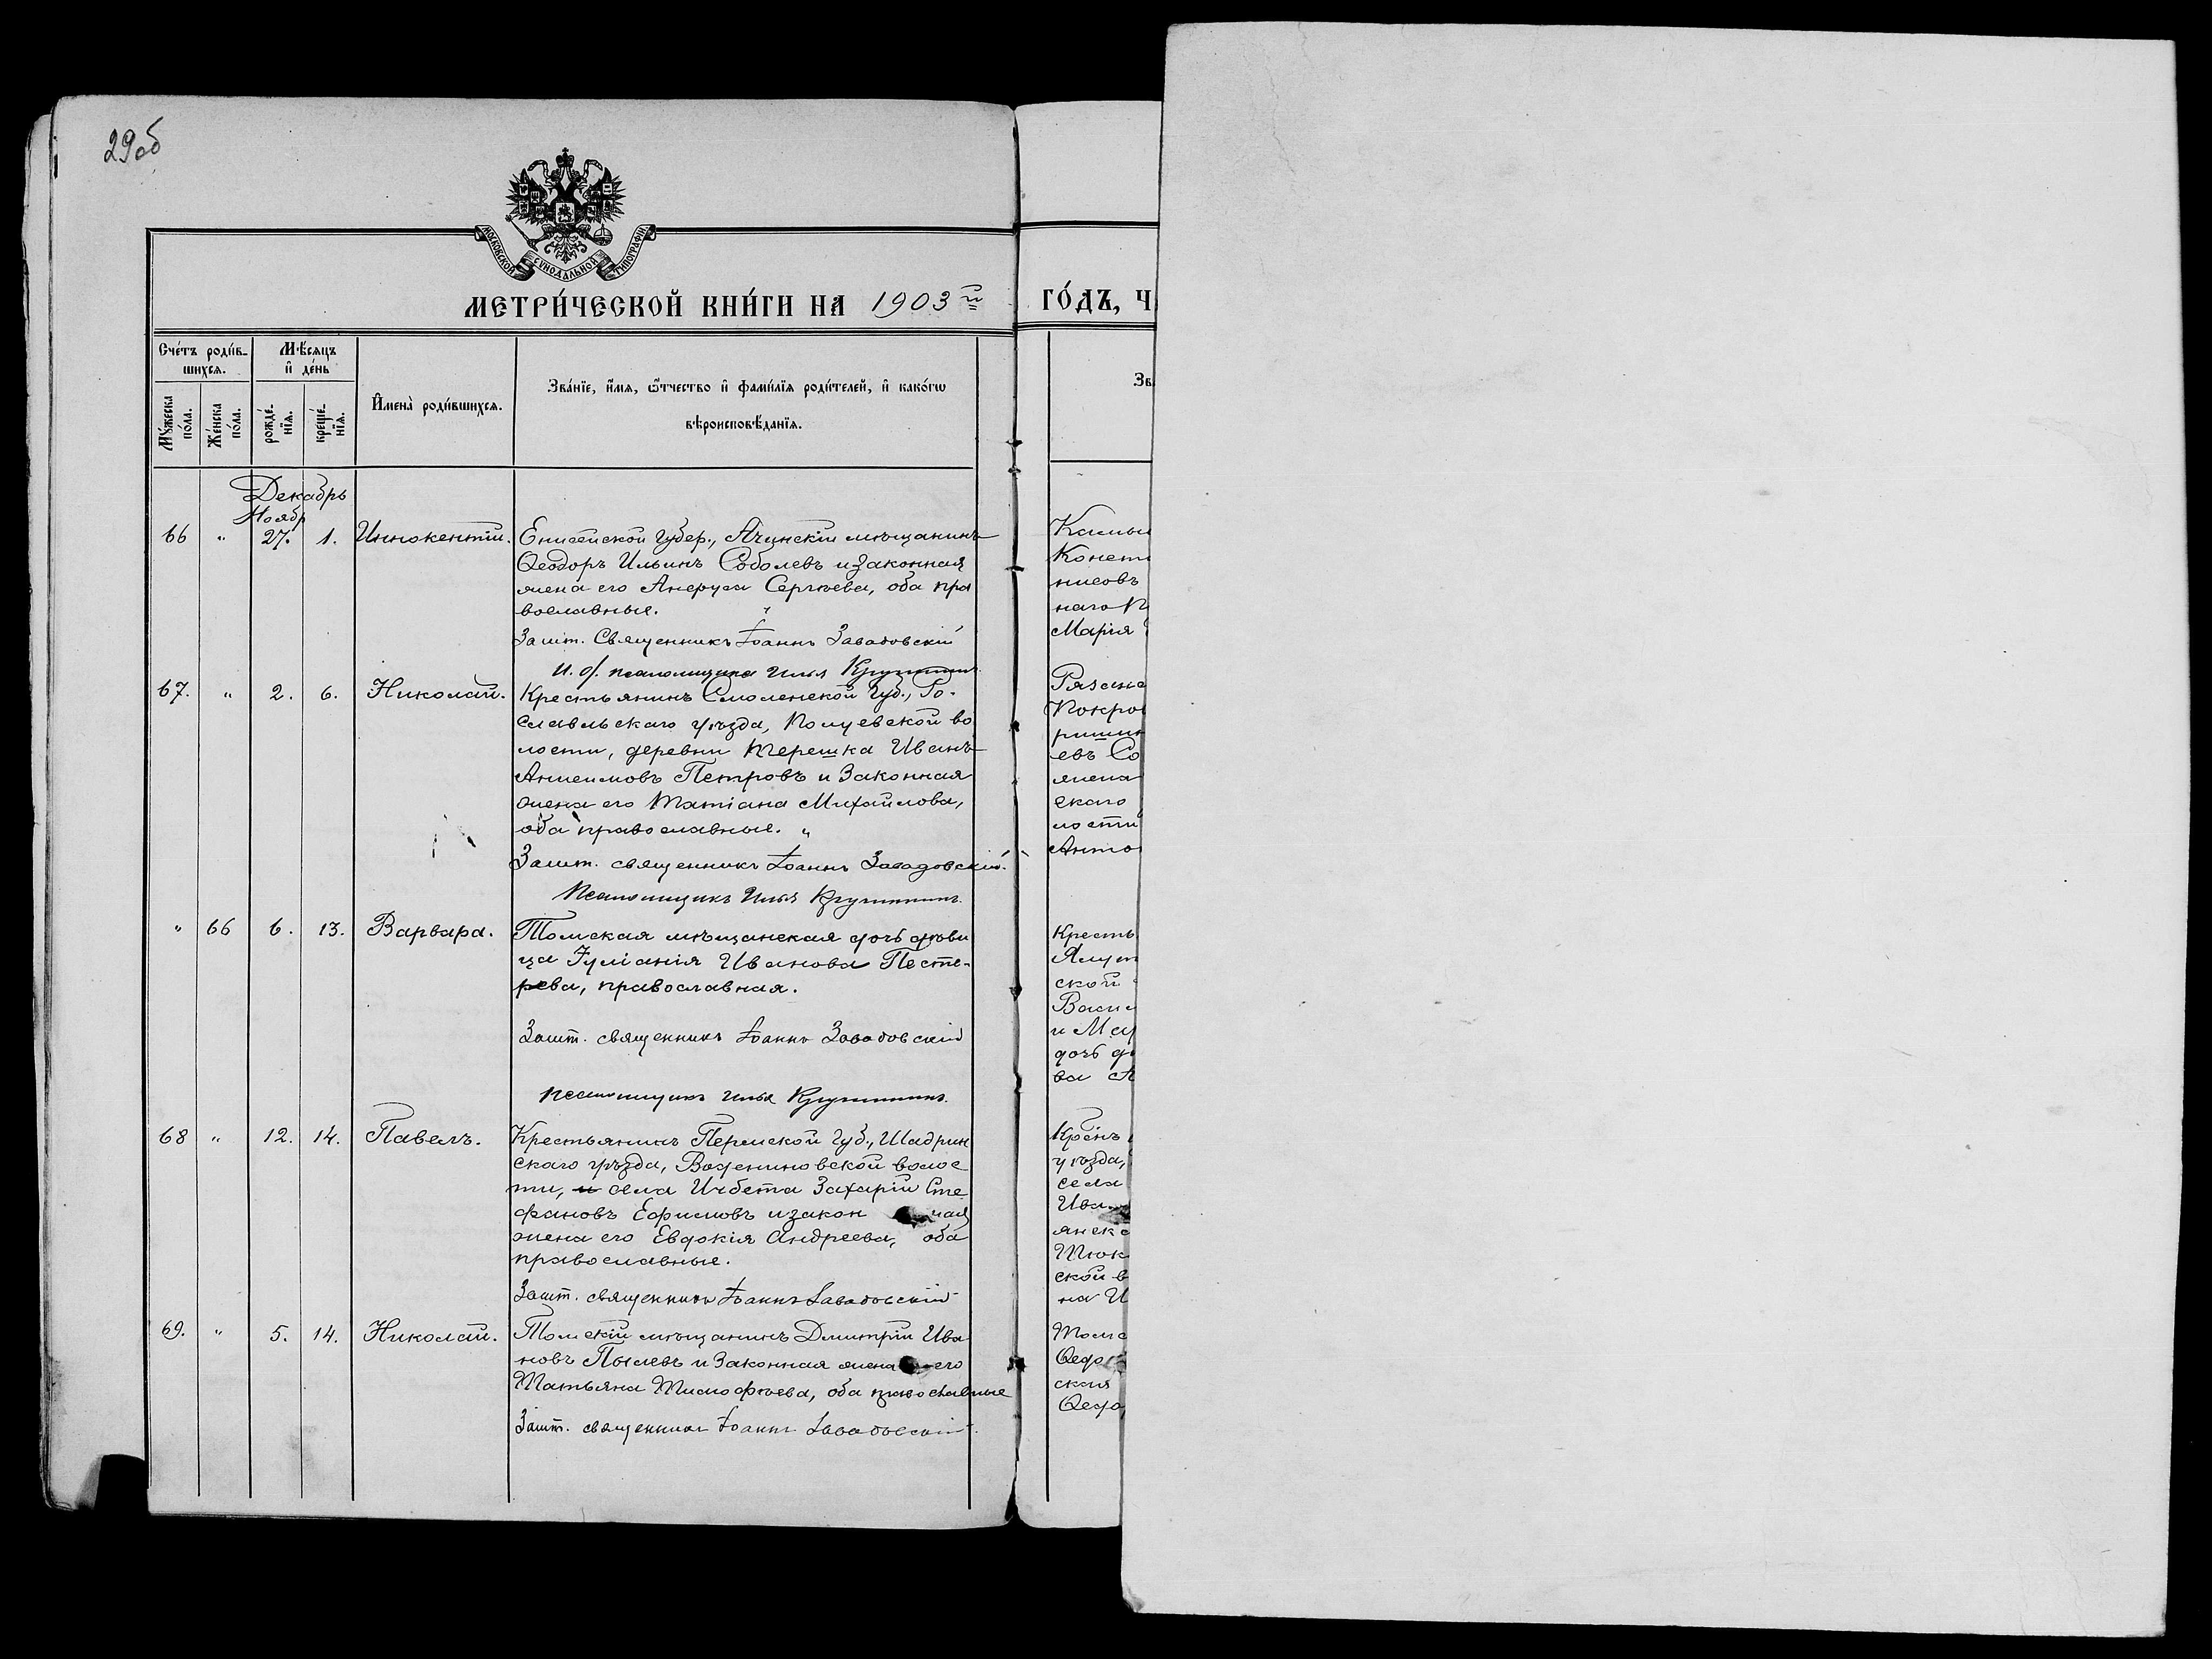 29об
МОСКОВСКОЙ СУНОДАЛЬНОЙ ТИПОГРАФІИ
МЕТРИ́ЧЕСКОЙ КНИ́ГИ НА 1903 й
ГО́ДЪ, Ч
Сче́тъ роди́в-
шихся.
Мѣ́сяцъ
и҆ де́нь
Мꙋ́жеска
по́ла.
Же́нска
по́ла.
рожде́-
нїя.
креще́-
нїя.
И҆мена̀ роди́вшихся.
Зва́нїе, и҆́мя, ѻ҆́тчество и҆ фами́лїя роди́телей, и҆ како́гѡ
вѣроисповѣ́данїя.
Зв
Декабрь
Ноябр
66 " 27. 1. Иннокентій. Енисейской губер., Ачинскій мѣщанинъ
Ѳеодоръ Ильинъ Соболевъ и законная
жена его Анфуса Сергѣева, оба пра
вославные.
Зашт. Священникъ Іоаннъ Завадовскій
И. д. псаломщика Илья
67. " 2. 6. Николай. Крестьянинъ Смоленской губ., Ро-
славльскаго уѣзда, во
лости, деревни Терешка Иванъ
Анисимовъ Петровъ и законная
жена его Татіана Михайлова,
оба православные. "
Зашт. священникъ Іоаннъ Завадовскій.
Псаломщикъ Илья
" 66 6. 13. Варвара. Томская мѣщанская дочь дѣви
ца Іуліанія Иванова Песте-
рева, православная.
Зашт. священникъ Іоаннъ Завадовскій
Псаломщикъ Илья
68 " 12. 14. Павелъ. Крестьянинъ Пермской губ., Шадрин
скаго уѣзда, волос
ти, села Захарій Сте
фановъ Ефимовъ и закон ная
жена его Евдокія Андреева, оба
православные.
Зашт. священникъ Іоаннъ Завадовскій
69. " 5. 14. Николай. Томскій мѣщанинъ Дмитрій Ива
новъ и законная жена его
Татьяна Тимофѣева, оба православные
Зашт. священникъ Іоаннъ Завадовскій.
Конст
нисовъ
наго
Марія
Рязанс
Покров
евъ Со
жена
скаго
лости
Анто
Кресть
Ялут
ской
Васил
и Ма
дочь д
ва А
уѣзда,
села
Ива
янск
Тюк
ской в
на И
Томс
Ѳедо
ская
Ѳедо